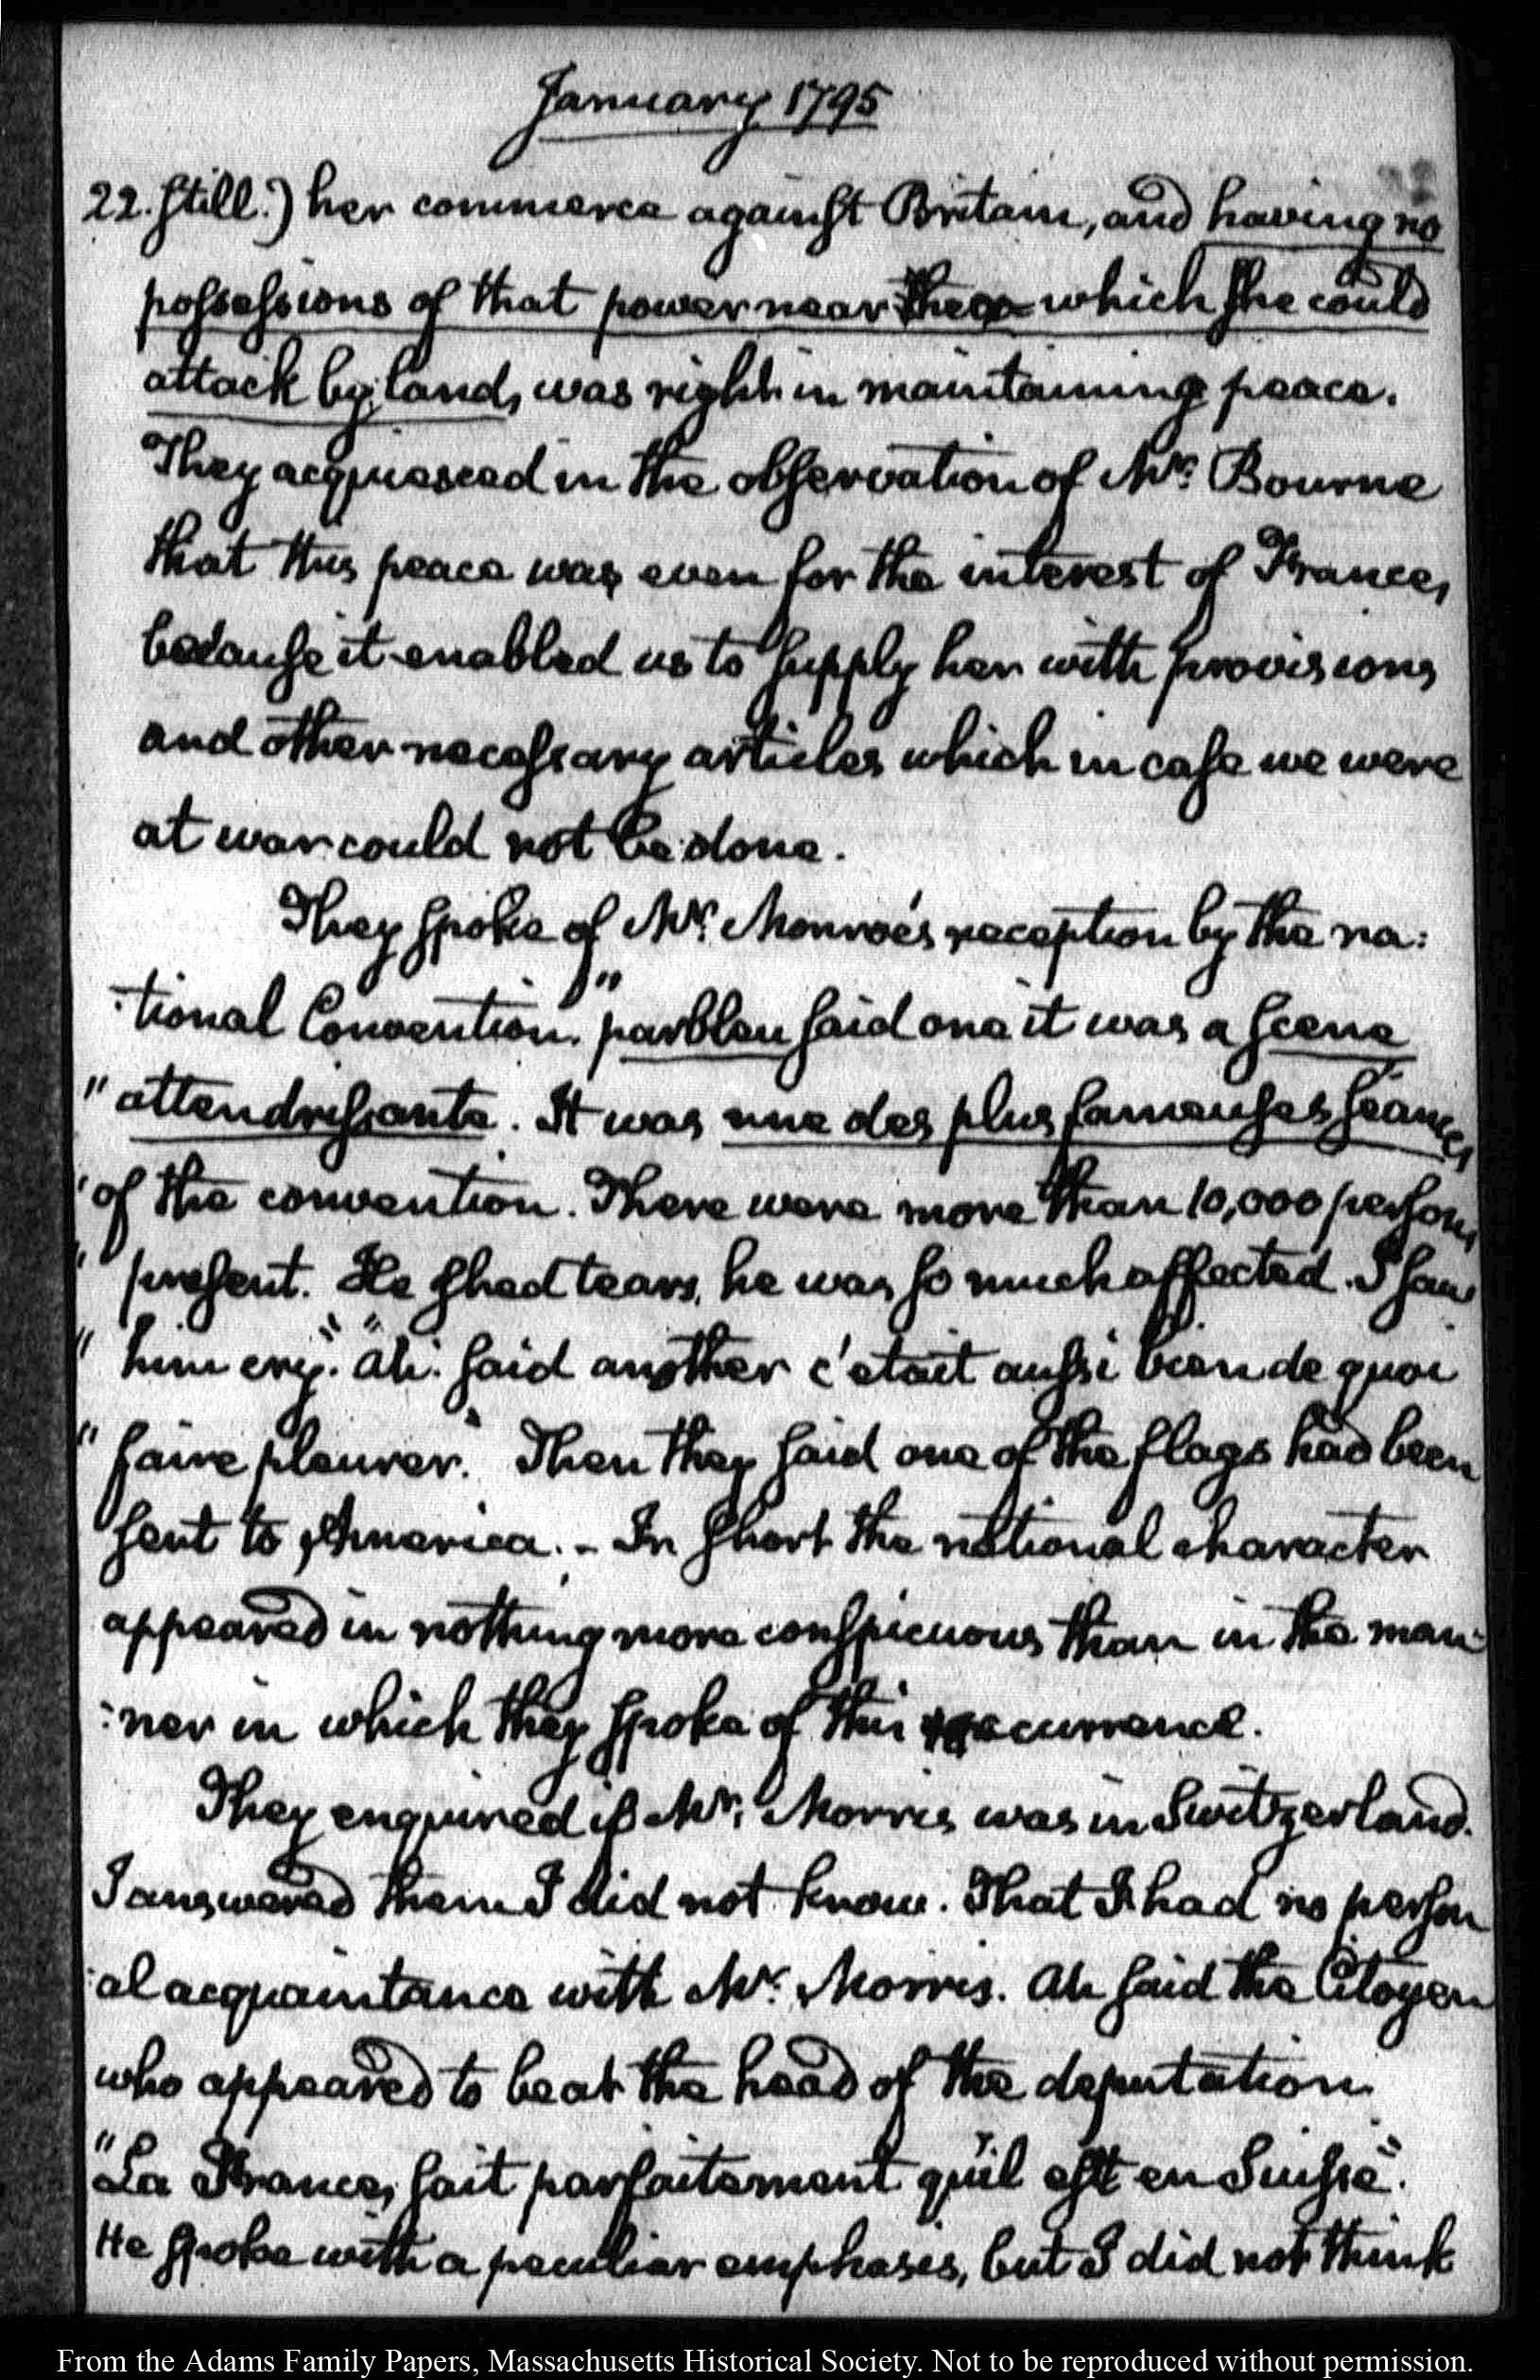 January 1795
22. still.) her commerce against Britain, and having no
possessions of that power near which she could
attack by land, was right in maintaining peace.
They acquiesced in the observation of Mr. Bourne
that this peace was even for the interest of France,
because it enabled us to supply her with provisions
and other necessary articles which in case we were
at war could not be done.
They spoke of Mr. Monroe's reception by the na:
:tional Convention. "parbleu said one it was a scene
"attendrissante. It was une des plus fameuses séances
"of the convention. There were more than 10,000 persons
"present. He shed tears, he was so much affected. I saw
"him cry." "ah. said another c'etait aussi bien de quoi
"faire pleurer." Then they said one of the flags had been
sent to America. - In short the national character
appeared in nothing more conspicuous than in the man:
:ner in which they spoke of this occurrence.
They enquired if Mr. Morris was in Switzerland.
I answered them I did not know. That I had no person
:al acquaintance with Mr. Morris. Ah said the Citoyen
who appeared to be at the head of the deputation.
"La France, sait parfaitement qu'il est en Suisse".
He spoke with a peculiar emphasis, but I did not think
From the Adams Family Papers, Massachusetts Historical Society. Not to be reproduced without permission.